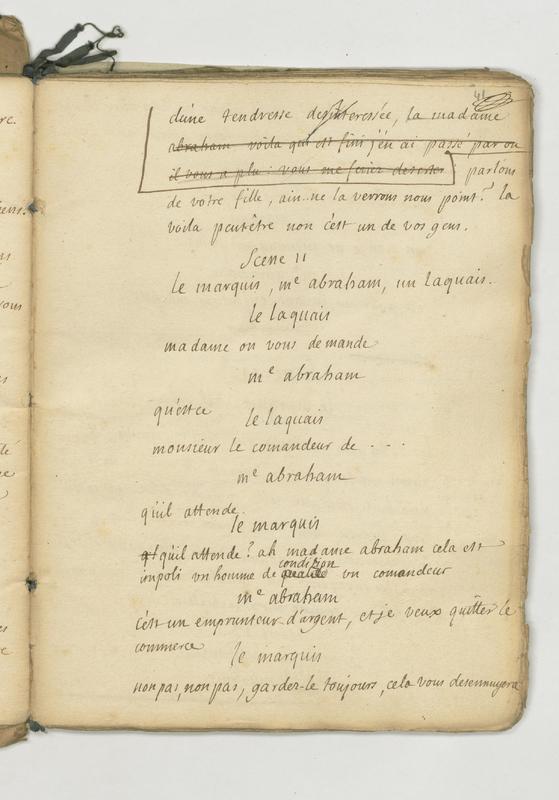 41
d'une tendresse desinteressée, la madame
abraham voila qui est fini j'en ai passé par ou
il vous a plu : vous me feriez deserter parlons
de votre fille, ne la verrons nous point? la
voila peutêtre non c'est un de vos gens.
Scene 11
le marquis, me abraham, un laquais.
le laquais
madame on vous demande
me abraham
qu'estce
le laquais
monsieur le comandeur de - - -
me abraham
qu'il attende.
le marquis
qu'il attende? ah madame abraham cela est
condition
impoli un homme de qualité un comandeur
me abraham
c'est un emprunteur d'argent, et je veux quitter le
commerce
le marquis
non pas, non pas, gardez-le toujours, cela vous desennuyera